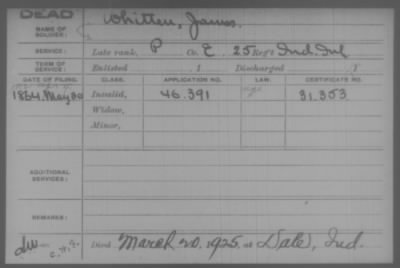 DEAD
NAME OF SOLDIER: Whitten, James.
SERVICE: Late rank, P Co. E, 25 Reg't Ind. Inf
TERM OF SERVICE: Enlisted 1 Discharged 1
DATE OF FILING. CLASS. APPLICATION NO. LAW. CERTIFICATE NO.
1864. May 30 Invalid, 46.391 31.353
Widow,
Minor,
ADDITIONAL SERVICES:
REMARKS:
Died March 20, 1925, at Dale, Ind.